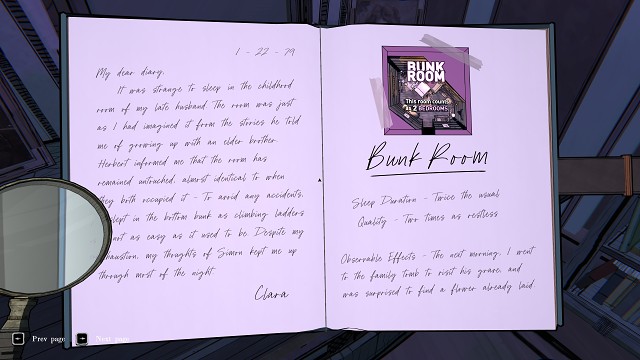 1 - 22 - 79
My dear diary,
It was strange to sleep in the childhood
room of my late husband. The room was just
as I had imagined it from the stories he told
me of growing up with an elder brother.
Herbert informed me that the room has
remained untouched, almost identical to when
they both occupied it - To avoid any accidents,
slept in the bottom bunk as climbing ladders
as easy as it used to be. Despite my
my thoughts of Simon kept me up
through most of the night.
Clara
BUNK
ROOM
This room counts
as 2 BEDROOMS
Bunk Room
Sleep Duration - Twice the usual
Quality - Two times as restless
Observable Effects - The next morning, I went
to the family tomb to visit his grave, and
was surprised to find a flower already laid
Prev page
Next page